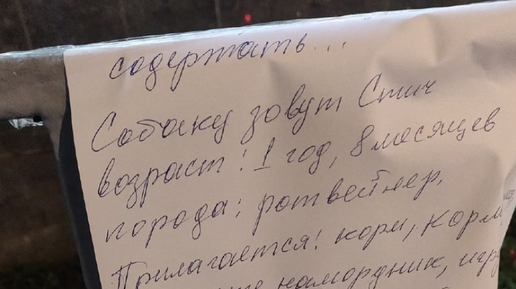 содержать...
Собаку зовут Стич
возраст: 1 год, 8 месяцев
порода: ротвейнер,
Прилагается: корм, корм
намордник, игр